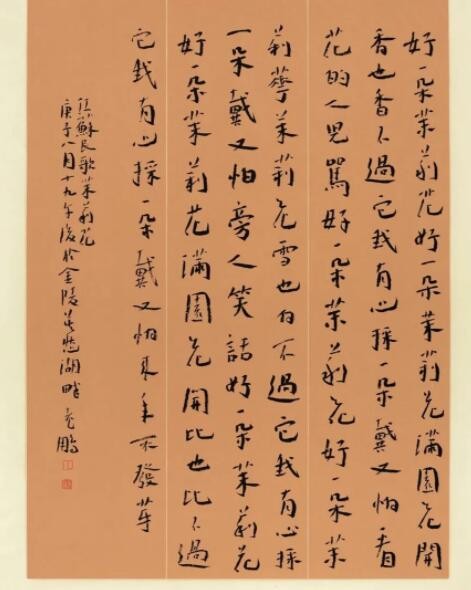 好一朵茉莉花好一朵茉莉花滿園花開
香也香不過它我有心採一朵戴又怕看
花的人兒罵好一朵茉莉花好一朵茉
莉茉莉花雪也白不過它我有心採
一朵戴又怕旁人笑話好一朵茉莉花
好一朵茉莉花滿園花開比也比不過
它我有心採一朵戴又怕來年不發芽
江蘇民歌茉莉花
庚子八月十九午後於金陵莫愁湖畔鵬